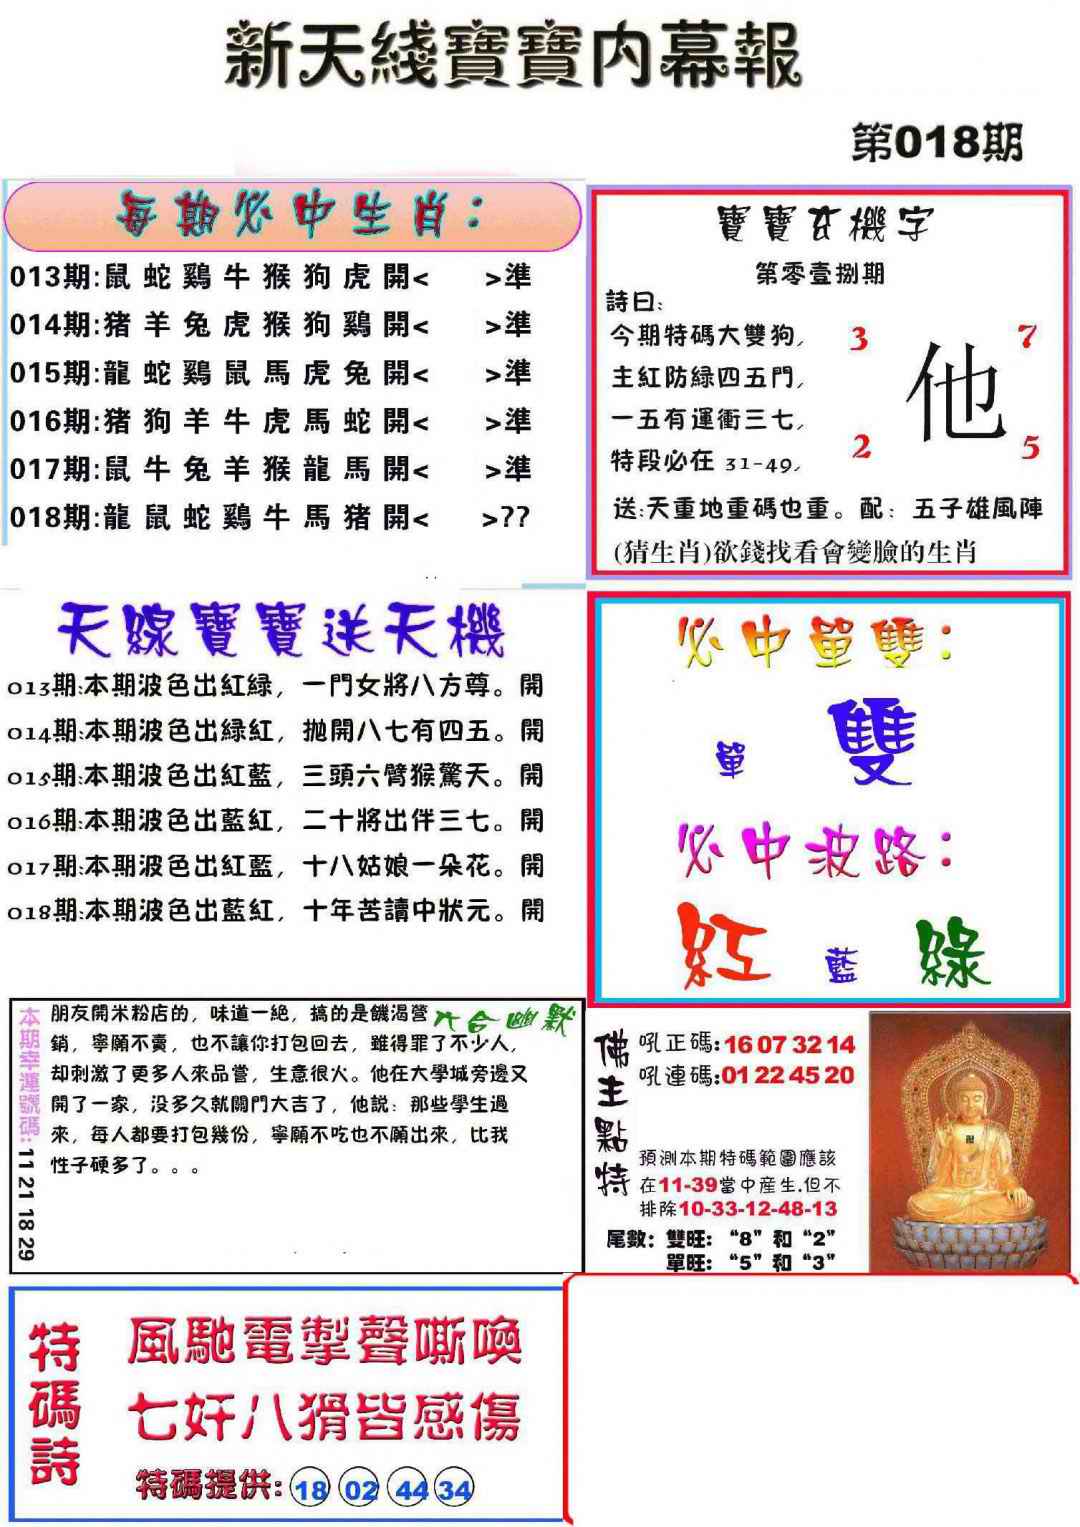 新天綫寶寶内幕報
第018期
每期必中生肖：
013期:鼠蛇鷄牛猴狗虎開< >準
014期:猪羊兔虎猴狗鷄開< >準
015期:龍蛇鷄鼠馬虎兔開< >準
016期:猪狗羊牛虎馬蛇開< >準
017期:鼠牛兔羊猴龍馬開< >準
018期:龍鼠蛇鷄牛馬猪開< >??
寶寶玄機字
第零壹捌期
詩曰:
今期特碼大雙狗,
主紅防緑四五門,
一五有運衝三七,
特段必在 31-49,
3 7
他
2 5
送:天重地重碼也重。配：五子雄風陣
(猜生肖)欲錢找看會變臉的生肖
天線寶寶送天機
013期:本期波色出紅緑，一門女將八方尊。開
014期:本期波色出緑紅，抛開八七有四五。開
015期:本期波色出紅藍，三頭六臂猴驚天。開
016期:本期波色出藍紅，二十將出伴三七。開
017期:本期波色出紅藍，十八姑娘一朵花。開
018期:本期波色出藍紅，十年苦讀中狀元。開
必中單雙：
單 雙
必中波路：
紅 藍 緑
本期幸運號碼: 11 21 18 29
六合幽默
朋友開米粉店的，味道一絶，搞的是饑渴營
銷，寧願不賣，也不讓你打包回去，雖得罪了不少人，
却刺激了更多人來品嘗，生意很火。他在大學城旁邊又
開了一家，没多久就關門大吉了，他説：那些學生過
來，每人都要打包幾份，寧願不吃也不願出來，比我
性子硬多了。。。
佛主點特
吼正碼:16 07 32 14
吼連碼:01 22 45 20
預測本期特碼範圍應該
在11-39當中産生.但不
排除10-33-12-48-13
尾數：雙旺：“8”和“2”
單旺：“5”和“3”
特碼詩
風馳電掣聲嘶喚
七奸八猾皆感傷
特碼提供: 18 02 44 34